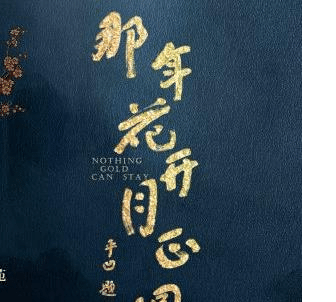 那年花开月正
NOTHING
GOLD
CAN STAY
平凹题